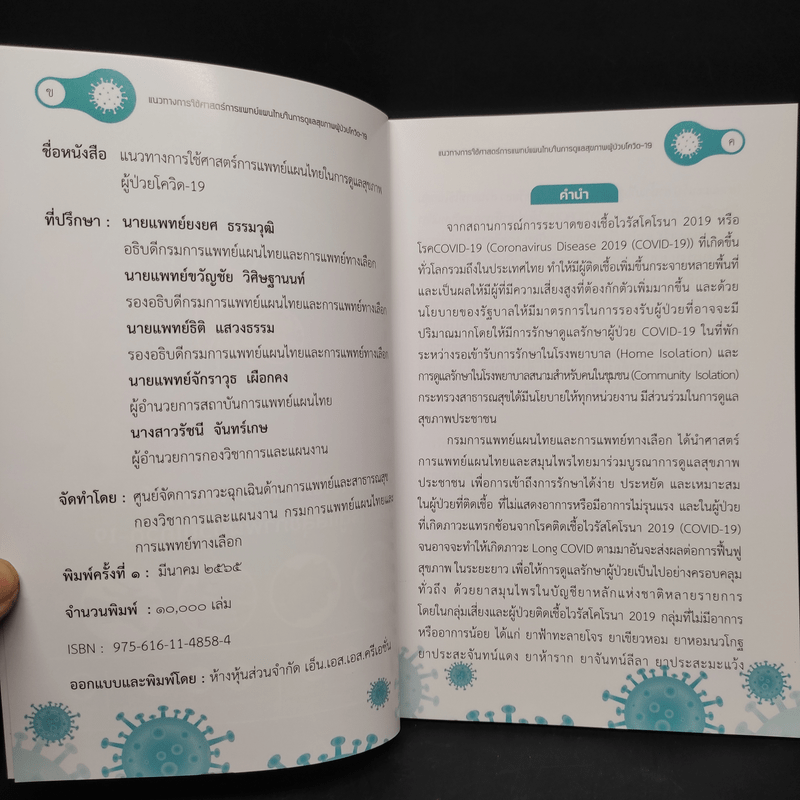 ข
แนวทางการใช้ศาสตร์การแพทย์แผนไทยในการดูแลสุขภาพผู้ป่วยโควิด-19
ชื่อหนังสือ แนวทางการใช้ศาสตร์การแพทย์แผนไทยในการดูแลสุขภาพ
ผู้ป่วยโควิด-19
ที่ปรึกษา : นายแพทย์ยงยศ ธรรมวุฒิ
อธิบดีกรมการแพทย์แผนไทยและการแพทย์ทางเลือก
นายแพทย์ขวัญชัย วิศิษฐานนท์
รองอธิบดีกรมการแพทย์แผนไทยและการแพทย์ทางเลือก
นายแพทย์ธิติ แสวงธรรม
รองอธิบดีกรมการแพทย์แผนไทยและการแพทย์ทางเลือก
นายแพทย์จักราวุธ เผือกคง
ผู้อำนวยการสถาบันการแพทย์แผนไทย
นางสาวรัชนี จันทร์เกษ
ผู้อำนวยการกองวิชาการและแผนงาน
จัดทำโดย : ศูนย์จัดการภาวะฉุกเฉินด้านการแพทย์และสาธารณสุข
กองวิชาการและแผนงาน กรมการแพทย์แผนไทยและ
การแพทย์ทางเลือก
พิมพ์ครั้งที่ ๑ : มีนาคม ๒๕๖๕
จำนวนพิมพ์ : ๑๐,๐๐๐ เล่ม
ISBN : 975-616-11-4858-4
ออกแบบและพิมพ์โดย : ห้างหุ้นส่วนจำกัด เอ็น.เอส.เอส.ครีเอชั่น
แนวทางการใช้ศาสตร์การแพทย์แผนไทยในการดูแลสุขภาพผู้ป่วยโควิด-19
ค
คำนำ
จากสถานการณ์การระบาดของเชื้อไวรัสโคโรนา 2019 หรือ
โรคCOVID-19 (Coronavirus Disease 2019 (COVID-19)) ที่เกิดขึ้น
ทั่วโลกรวมถึงในประเทศไทย ทำให้มีผู้ติดเชื้อเพิ่มขึ้นกระจายหลายพื้นที่
และเป็นผลให้มีผู้ที่มีความเสี่ยงสูงที่ต้องกักตัวเพิ่มมากขึ้น และด้วย
นโยบายของรัฐบาลให้มีมาตรการในการรองรับผู้ป่วยที่อาจจะมี
ปริมาณมากโดยให้มีการรักษาดูแลรักษาผู้ป่วย COVID-19 ในที่พัก
ระหว่างรอเข้ารับการรักษาในโรงพยาบาล (Home Isolation) และ
การดูแลรักษาในโรงพยาบาลสนามสำหรับคนในชุมชน (Community Isolation)
กระทรวงสาธารณสุขได้มีนโยบายให้ทุกหน่วยงาน มีส่วนร่วมในการดูแล
สุขภาพประชาชน
กรมการแพทย์แผนไทยและการแพทย์ทางเลือก ได้นำศาสตร์
การแพทย์แผนไทยและสมุนไพรไทยมาร่วมบูรณาการดูแลสุขภาพ
ประชาชน เพื่อการเข้าถึงการรักษาได้ง่าย ประหยัด และเหมาะสม
ในผู้ป่วยที่ติดเชื้อ ที่ไม่แสดงอาการหรือมีอาการไม่รุนแรง และในผู้ป่วย
ที่เกิดภาวะแทรกซ้อนจากโรคติดเชื้อไวรัสโคโรนา 2019 (COVID-19)
จนอาจจะทำให้เกิดภาวะ Long COVID ตามมาอันจะส่งผลต่อการฟื้นฟู
สุขภาพ ในระยะยาว เพื่อให้การดูแลรักษาผู้ป่วยเป็นไปอย่างครอบคลุม
ทั่วถึง ด้วยยาสมุนไพรในบัญชียาหลักแห่งชาติหลายรายการ
โดยในกลุ่มเสี่ยงและผู้ป่วยติดเชื้อไวรัสโคโรนา 2019 กลุ่มที่ไม่มีอาการ
หรืออาการน้อย ได้แก่ ยาฟ้าทะลายโจร ยาเขียวหอม ยาหอมนวโกฐ
ยาประสะจันทน์แดง ยาห้าราก ยาจันทน์ลีลา ยาประสะมะแว้ง